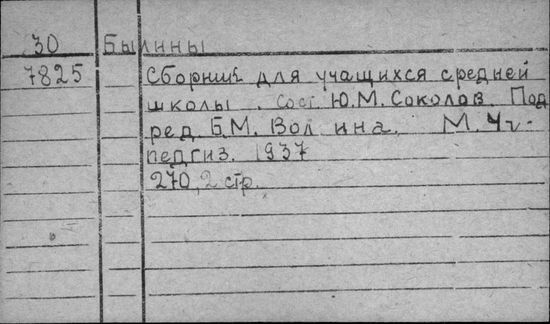 30 Былины
7825 Сборник для учащихся средней
школы. Сост. Ю.М. Соколов. Под
ред. Б.М. Волина. М. Уч-
педгиз. 1937
270, 2 стр.